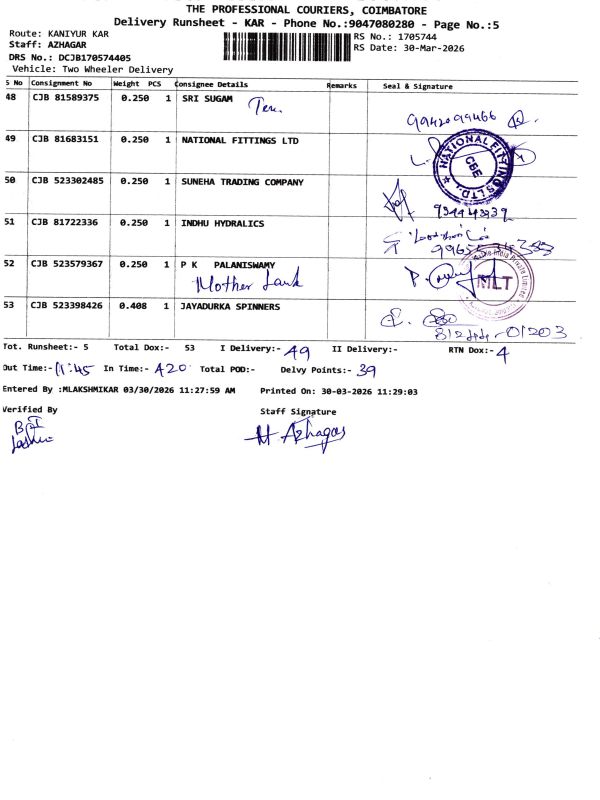 THE PROFESSIONAL COURIERS, COIMBATORE
Delivery Runsheet - KAR - Phone No.:9047080280 - Page No.:5
Route: KANIYUR KAR
RS No.: 1705744
Staff: AZHAGAR
RS Date: 30-Mar-2026
DRS No.: DCJB170574405
Vehicle: Two Wheeler Delivery
S No Consignment No Weight PCS Consignee Details Remarks Seal & Signature
48 CJB 81589375 0.250 1 SRI SUGAM
9942099466
49 CJB 81683151 0.250 1 NATIONAL FITTINGS LTD
NATIONAL FITTINGS LTD. CBE
50 CJB 523302485 0.250 1 SUNEHA TRADING COMPANY
51 CJB 81722336 0.250 1 INDHU HYDRALICS
52 CJB 523579367 0.250 1 P K PALANISWAMY
MLT
53 CJB 523398426 0.408 1 JAYADURKA SPINNERS
Tot. Runsheet:- 5 Total Dox:- 53 I Delivery:- 49 II Delivery:- RTN Dox:- 4
Out Time:- 11:45 In Time:- 420 Total POD:- Delvy Points:- 39
Entered By :MLAKSHMIKAR 03/30/2026 11:27:59 AM Printed On: 30-03-2026 11:29:03
Verified By Staff Signature
Azhagar